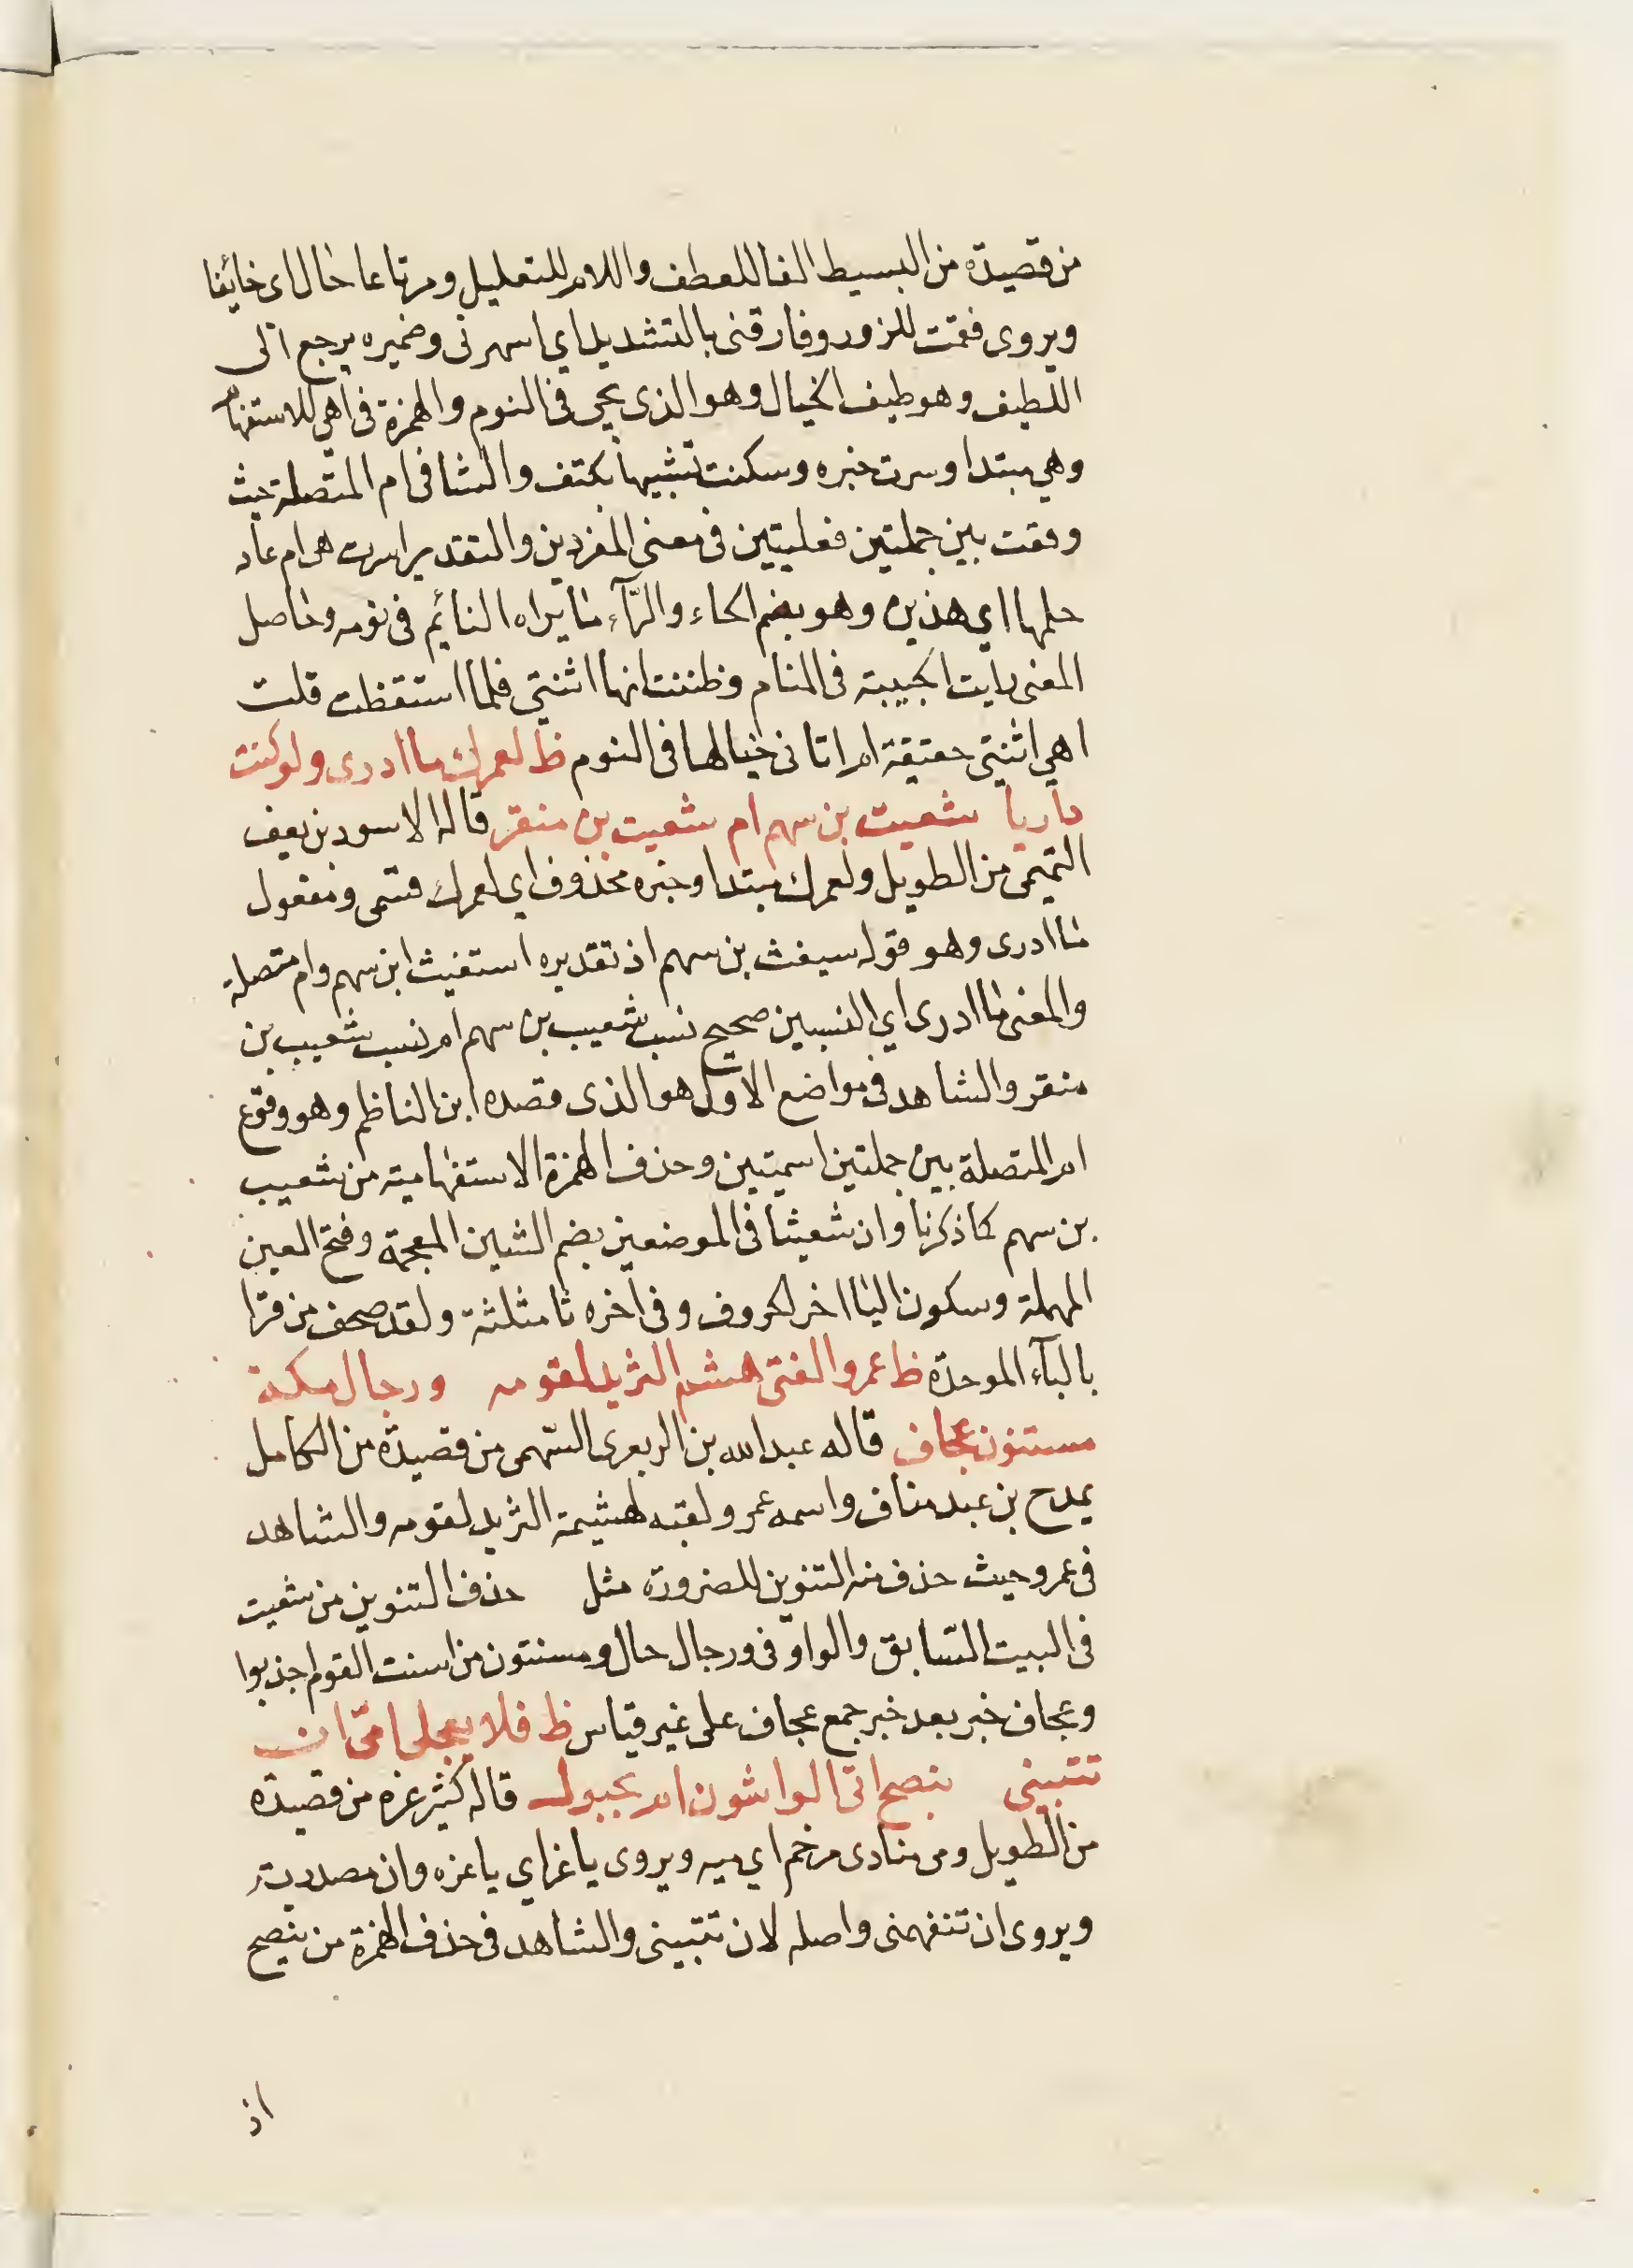 من قصيدة من البسيط الفا للعطف واللام للتعليل ومرتاعا حال اى خائفا
ويروى فقمت للزور وفارقنى بالتشديد اي اسهرنى وضميره يرجع الى
اللطيف وهو طيف الخيال وهو الذى يجى فى النوم والهمزة فى اهي للاستفهام
وهي مبتدا وسرت خبره وسكنت تشبيها بكتف والشا فى ام المتصلة حيث
وقعت بين جملتين فعليتين فى معنى المفردين والتقدير اسرت هى ام عاد
حلمها اي هذين وهو بضم الحاء والرآء ما يراه النائم فى نومه وحاصل
المعنى رايت الحبيبة فى المنام وظننت انها اثنتي فلما استقظت قلت
اهي اثنتي حقيقة ام اتانى خيالها فى النوم ظ لعمرك ما ادرى ولو كنت
داريا شعيث بن سهم ام شعيث بن منقر قاله الاسود بن يعف
التميمى من الطويل ولعمرك مبتدا وخبره محذوف اي لعمرك قسمى ومفعول
ما ادرى وهو قوله سيغث بن سهم اذ تقديره استغيث ابن سهم وام متصلة
والمعنى ما ادرى اي النسبين صحيح نسب شعيب بن سهم ام نسب شعيب بن
منقر والشاهد فى مواضع الاول هو الذى قصده ابن الناظم وهو وقوع
ام المتصلة بين جملتين اسميتين وحذف الهمزة الاستفهامية من شعيب
بن سهم كما ذكرنا وان شعيثا فى الموضعين بضم الشين المعجمة وفتح العين
المهملة وسكون اليا اخر الحروف وفى اخره ثا مثلثة ولقد صحف من قرا
بالبآء الموحدة ظ عمرو الفتى هشم الثريد لقومه ورجال مكة
مسنتون عجاف قاله عبد الله بن الزبعرى السهمى من قصيدة من الكامل
يمدح بن عبد مناف واسمه عمرو لقبه لهشيمة الثريد لقومه والشاهد
فى عمرو حيث حذف منه التنوين للضرورة مثل حذف التنوين من شعيت
فى البيت السابق والواو فى ورجال حال ومسنتون من اسنت القوم اجذبوا
وعجاف خبر بعد خبر جمع عجاف على غير قياس ظ فلا يعجلى امىّ ان
تتبينى بنصح اتى الواشون ام بحبول قاله كثير عزه من قصيدة
من الطويل ومى منادى مرخم اي ميه ويروى يا عز اي يا عزه وان مصدرية
ويروى ان تتفهمنى واصله لان تتبينى والشاهد فى حذف الهمزة من بنصح
اذ